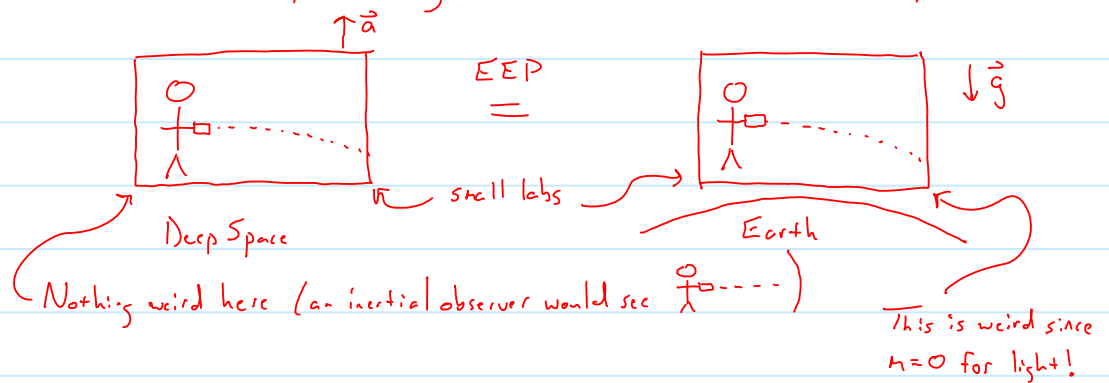 ↑ a⃗
EEP
=
↓ g⃗
small labs
Deep Space
Earth
Nothing weird here (an inertial observer would see )
This is weird since
m=0 for light!